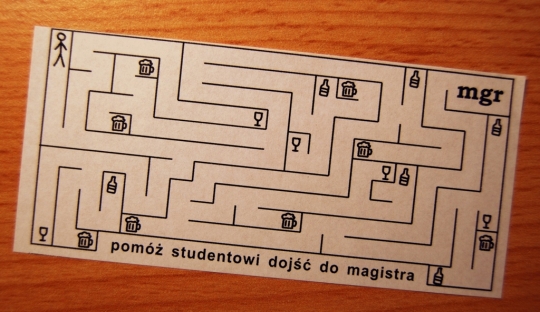 mgr
pomóż studentowi dojść do magistra